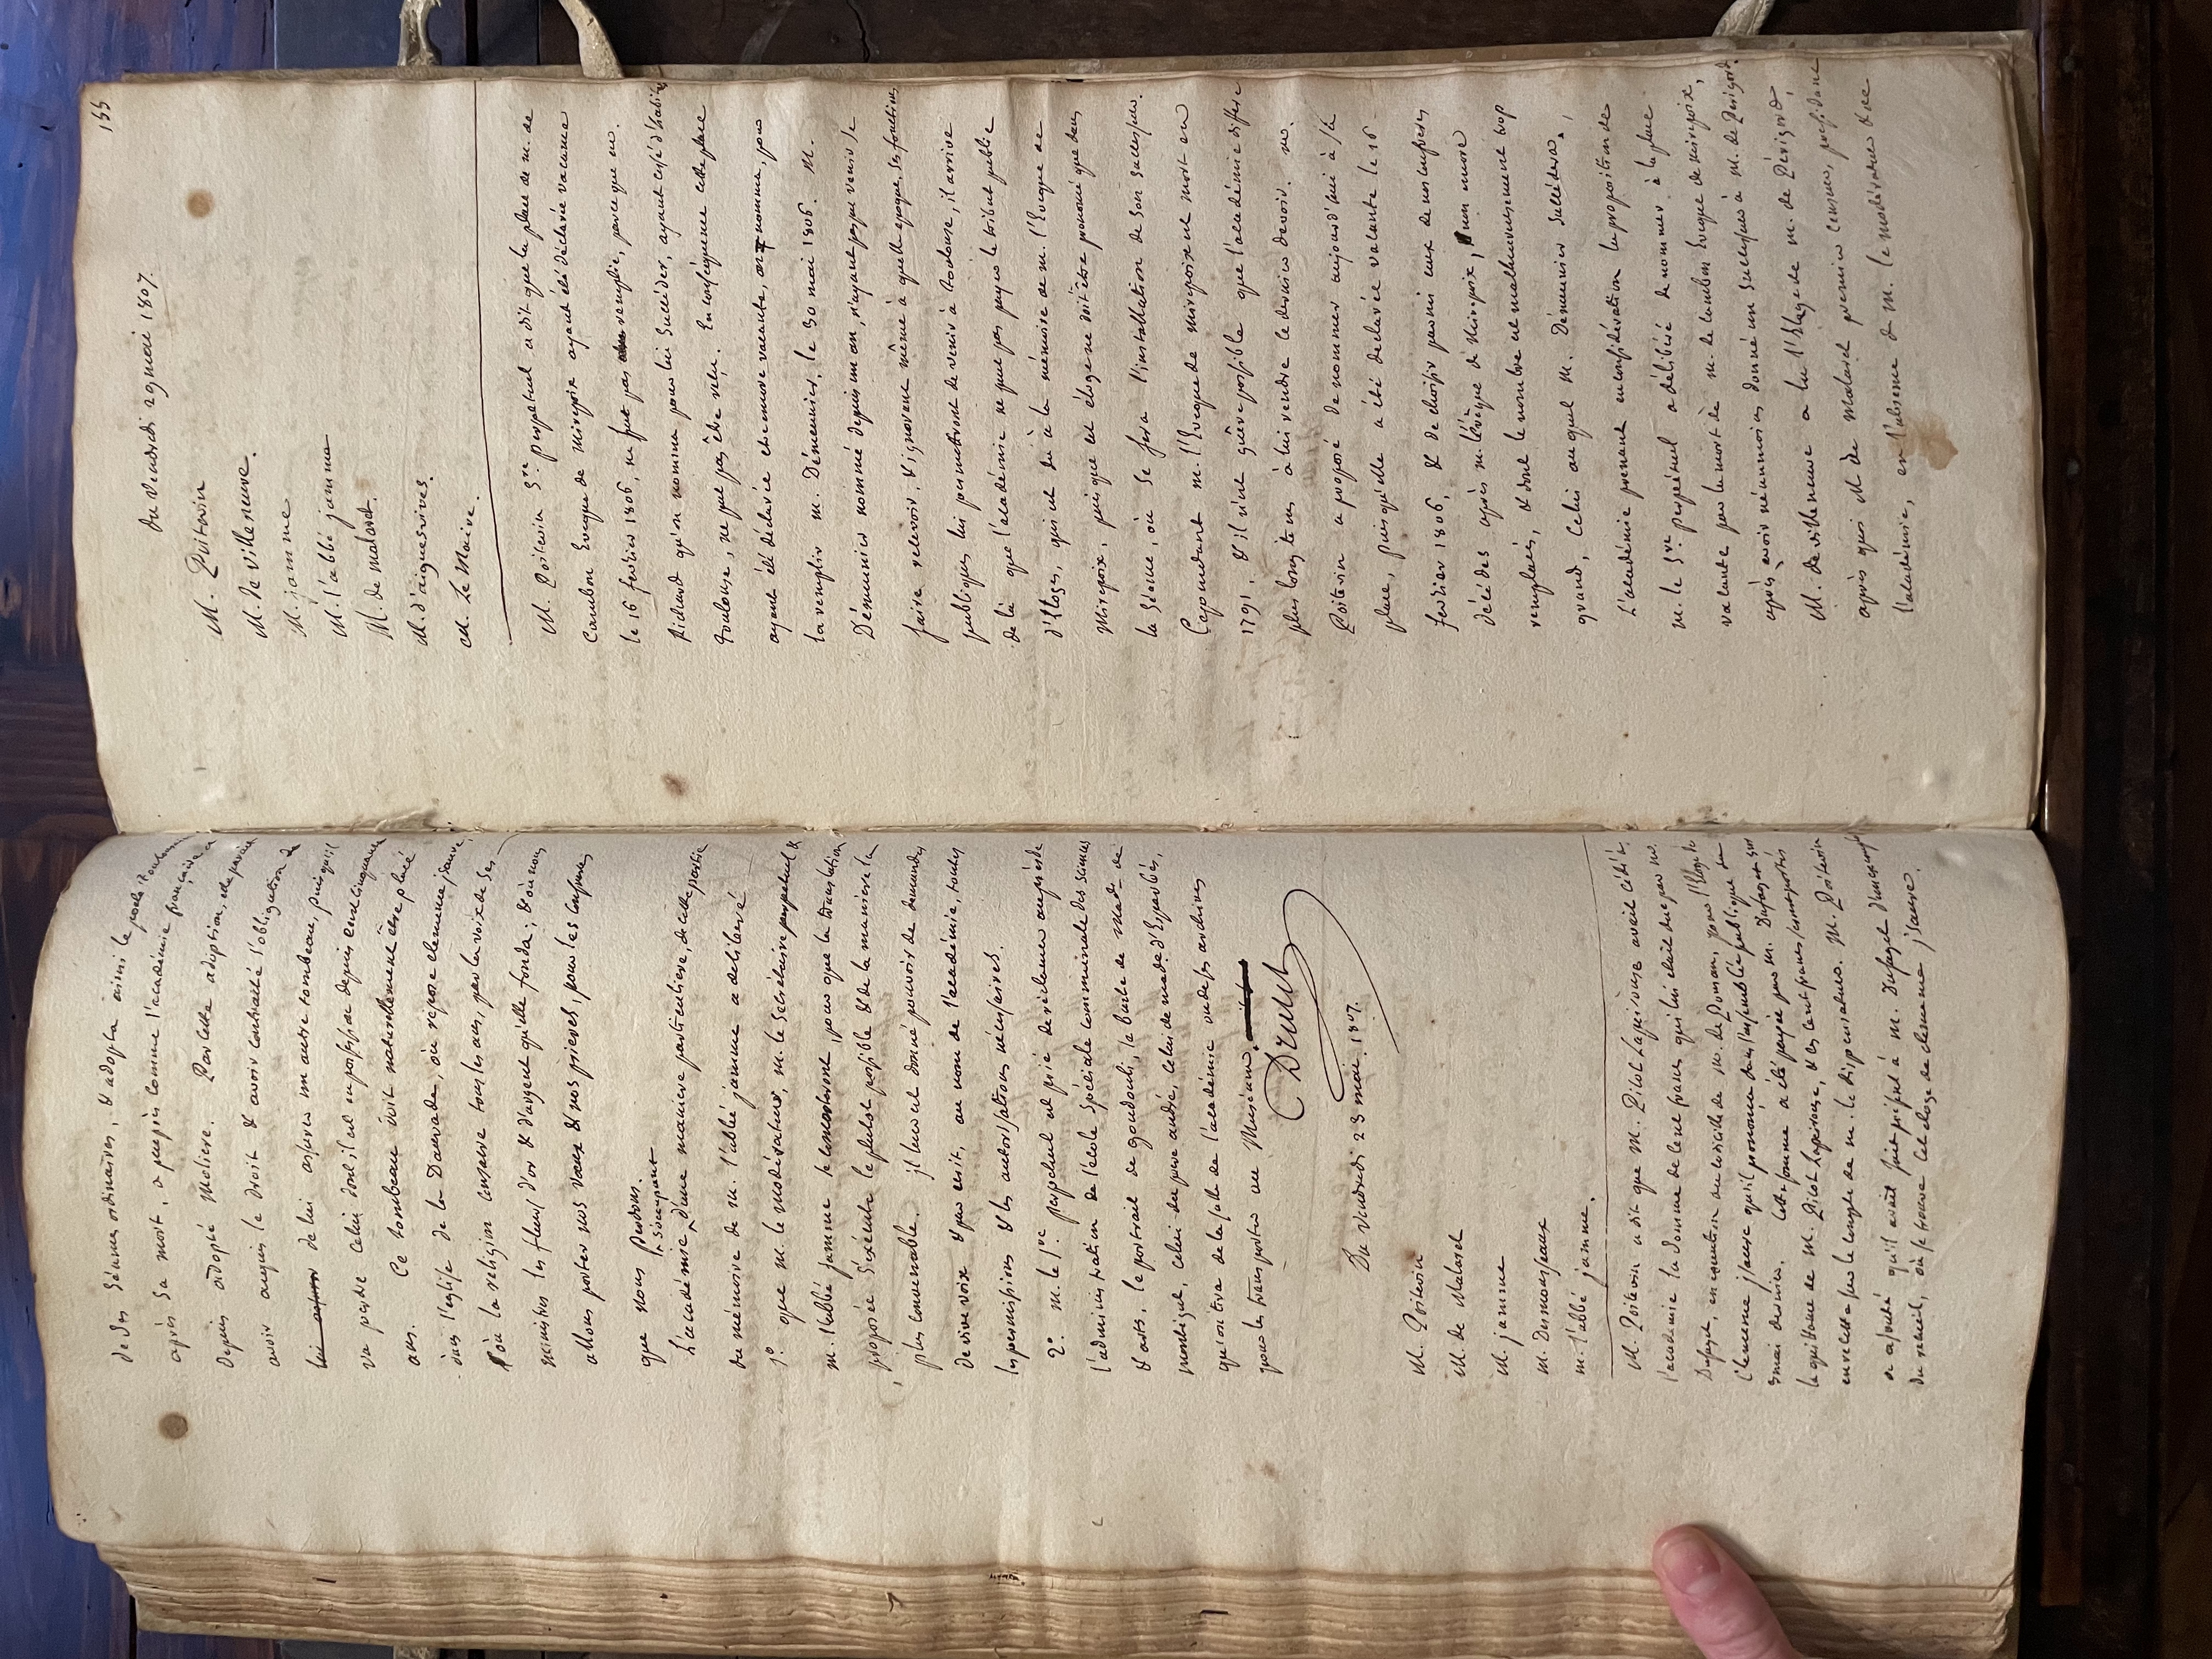 de ses séances ordinaires, & adopta ainsi le poete toulousain
après sa mort, a peu près comme l'académie française a
depuis adopté Moliere. Par cette adoption, elle parait
avoir acquis le droit & avoir contracté l'obligation de
lui assurer de lui assurer un autre tombeau, puisqu'il
va perdre celui dont il est en possession depuis cent cinquante
ans. Ce tombeau doit naturellement être placé
dans l'eglise de la Daurade, où repose clemence jsaure,
où la religion conserve tous les ans, par la voix de ses
ministres les fleurs d'or & d'argent qu'elle fonda; & où nous
allons porter nos vœux & nos prieres, pour les confreres
que nous perdons.
s'occupant
L'académie d'une maniere particuliere, de cette partie
du mémoire de M. l'abbé jamme a delibéré
1º. que M. le modérateur, M. le Secrétaire perpetuel &
M. l'abbé jamme se concerteront, pour que la translation
proposée s'exécute le plutot possible & de la maniere la
plus convenable. il leur est donné pouvoir de demander
de vive voix & par ecrit, au nom de l'académie, toutes
les permissions & les autorisations nécessaires.
2º. M. le Sre. perpetuel est prié de réclamer auprès de
l'administration de l'école Spéciale communale des sciences
& arts, le portrait de goudouli, le buste de Made. de
montégut, celui du pere andré, celui de made. d'Esparbès,
qu'on tira de la salle de l'académie ou de ses archives
pour les transporter au Muséum.
Du vendredi 23 mai. 1807.
M. Poitevin
M. de Malaret
M. jamme
M. Desmousseaux
M. l'abbé jamme.
M. Poitevin a dit que M. Pilot Lapeirouse avait cédé à
l'académie la somme de cent francs qui lui était due par M.
Dufaget, en exécution du legs de M. de Ponsan, pour l'Eloge de
clemence jsaure qu'il prononça dans l'assemblée publique du
3 mai dernier. Cette somme a été payée par M. Dufaget sur
la quittance de M. Pilot Lapeirouse, & les cent francs sont portés
en recette sur le compte de M. le dispensateur. M. Poitevin
a ajouté qu'il avait fait présent à M. Dufaget d'un exemplaire
du recueil, où se trouve cet eloge de clemence jsaure.
155
Du Vendredi 29 mai 1807.
M. Poitevin
M. de Villeneuve.
M. jamme
M. l'abbé jamme
M. de malaret.
M. d'aiguesvives.
M. Le Maire.
M. Poitevin Sre. perpetuel a dit que la place de M. de
Cambon Evêque de Mirepoix ayant été déclarée vacante
le 16 fevrier 1806, ne fut pas remplie, parce que M.
Picard qu'on nomma pour lui succéder, ayant cessé d'habiter
toulouse, ne put pas être reçu. En conséquence cette place
ayant été déclarée encore vacante, on nomma, pour
la remplir M. Démeunier, le 30 mai 1806. M.
Démeunier nommé depuis un an, n'ayant pas pu venir se
faire recevoir, & ignorant même à quelle epoque, ses fonctions
publiques lui permettront de venir à toulouse, il arrive
de là que l'académie ne peut pas payer le tribut public
d'Eloges, qui est dû à la mémoire de M. l'Evêque de
Mirepoix, puisque cet éloge ne doit être prononcé que dans
la Séance, où se fera l'installation de son successeur.
Cependant M. l'Evêque de mirepoix est mort en
1791, & il n'est guère possible que l'académie differe
plus longtems à lui rendre le dernier devoir. M.
Poitevin a proposé de nommer aujourd'hui à sa
place, puisqu'elle a été declarée vacante le 16
fevrier 1806, & de choisir parmi ceux de nos confreres
décédés après M. l'évêque de Mirepoix, un mort
remplacé, & dont le nombre est malheureusement trop
grand, celui au quel M. Démeunier succédera.
L'académie prenant en considération la proposition de
M. le Sre. perpétuel a délibéré de nommer à la place
vacante par la mort de M. de Cambon Evêque de mirepoix,
après avoir néanmoins donné un successeur à M. de Périgord.
M. de Villeneuve a lu l'Eloge de M. de Périgord,
après quoi M. de Malaret premier censeur, présidant
l'académie, en l'absence de M. le modérateur & de